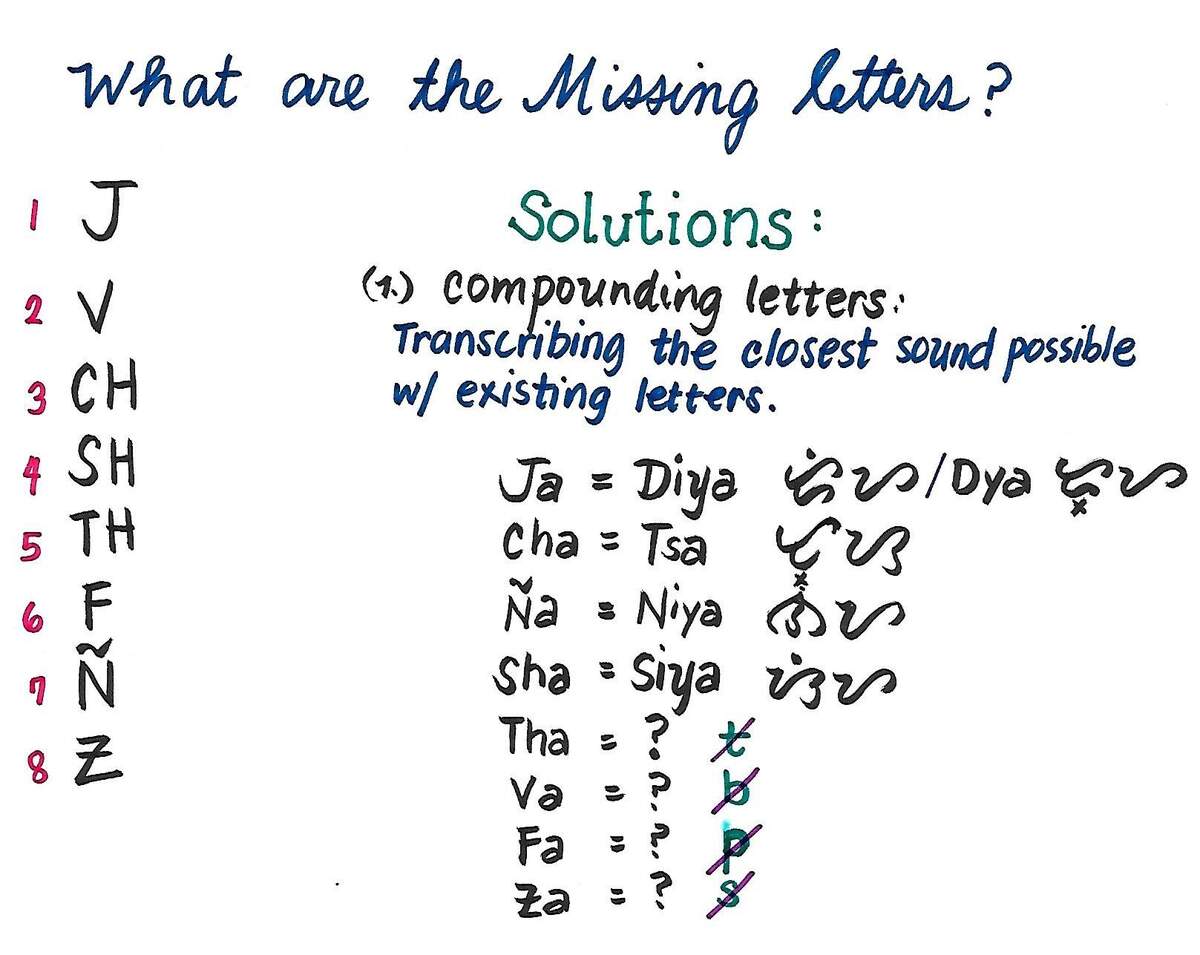 What are the Missing letters?
1 J
2 V
3 CH
4 SH
5 TH
6 F
7 Ñ
8 Z
Solutions:
(1.) compounding letters:
Transcribing the closest sound possible
w/ existing letters.
Ja = Diya ᜇᜒᜌ / Dya ᜇ᜔ᜌ
Cha = Tsa ᜆ᜔ᜐ
Ña = Niya ᜈᜒᜌ
Sha = Siya ᜐᜒᜌ
Tha = ? t
Va = ? b
Fa = ? p
Za = ? s